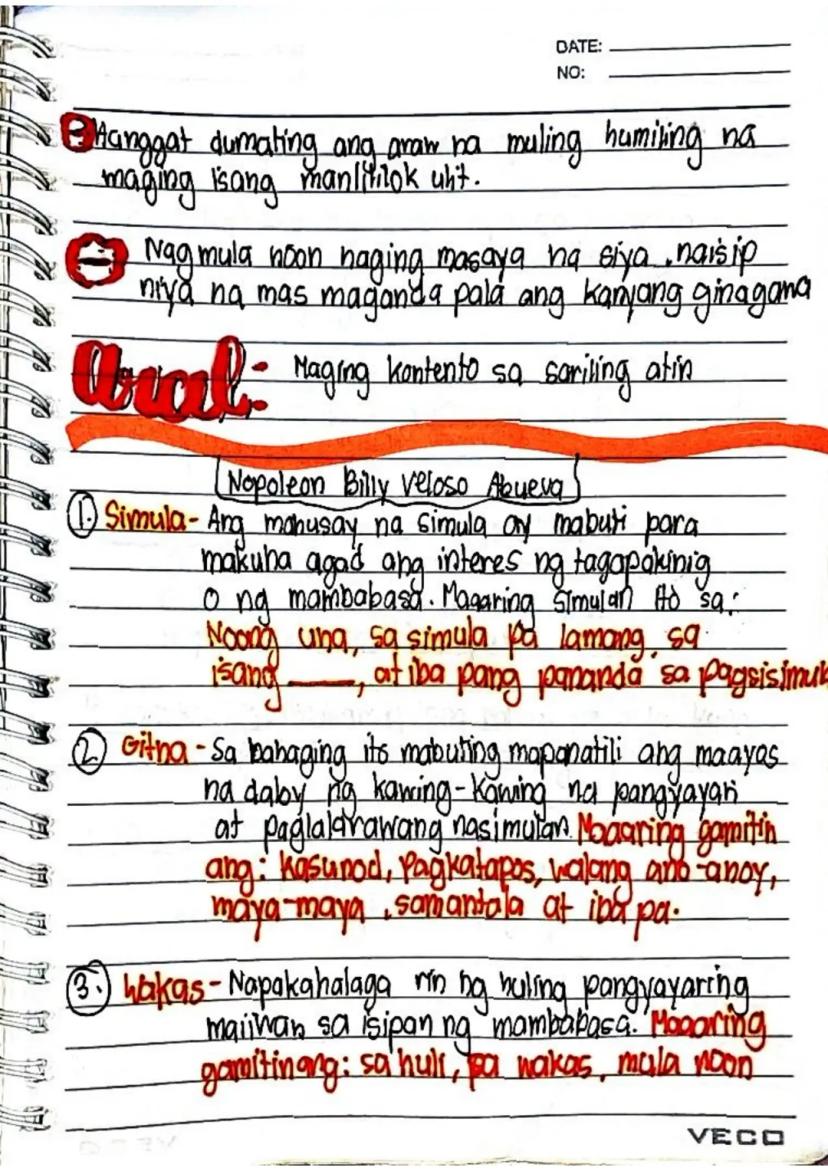 DATE:
NO:
Hanggat dumating ang araw na muling humiling na
maging isang manlililok ulit.
Nagmula noon naging masaya na siya, naisip
niya na mas maganda pala ang kanyang ginagawa
Aral: Maging kontento sa sariling atin
Napoleon Billy Veloso Abueva
1. Simula - Ang mahusay na simula ay mabuti para
makuha agad ang interes ng tagapakinig
o ng mambabasa. Maaaring simulan ito sa:
Noong una, sa simula pa lamang, sa
isang ____, at iba pang pananda sa pagsisimul
2. Gitna - Sa bahaging ito mabuting mapanatili ang maayos
na daloy ng kawing-kawing na pangyayari
at paglalarawang nasimulan. Maaaring gamitin
ang: kasunod, Pagkatapos, walang ano-anoy,
maya-maya, samantala at iba pa.
3. Wakas - Napakahalaga rin ng huling pangyayaring
maiiwan sa isipan ng mambabasa. Maaaring
gamitin ang: sa huli, sa wakas, mula noon
VECO